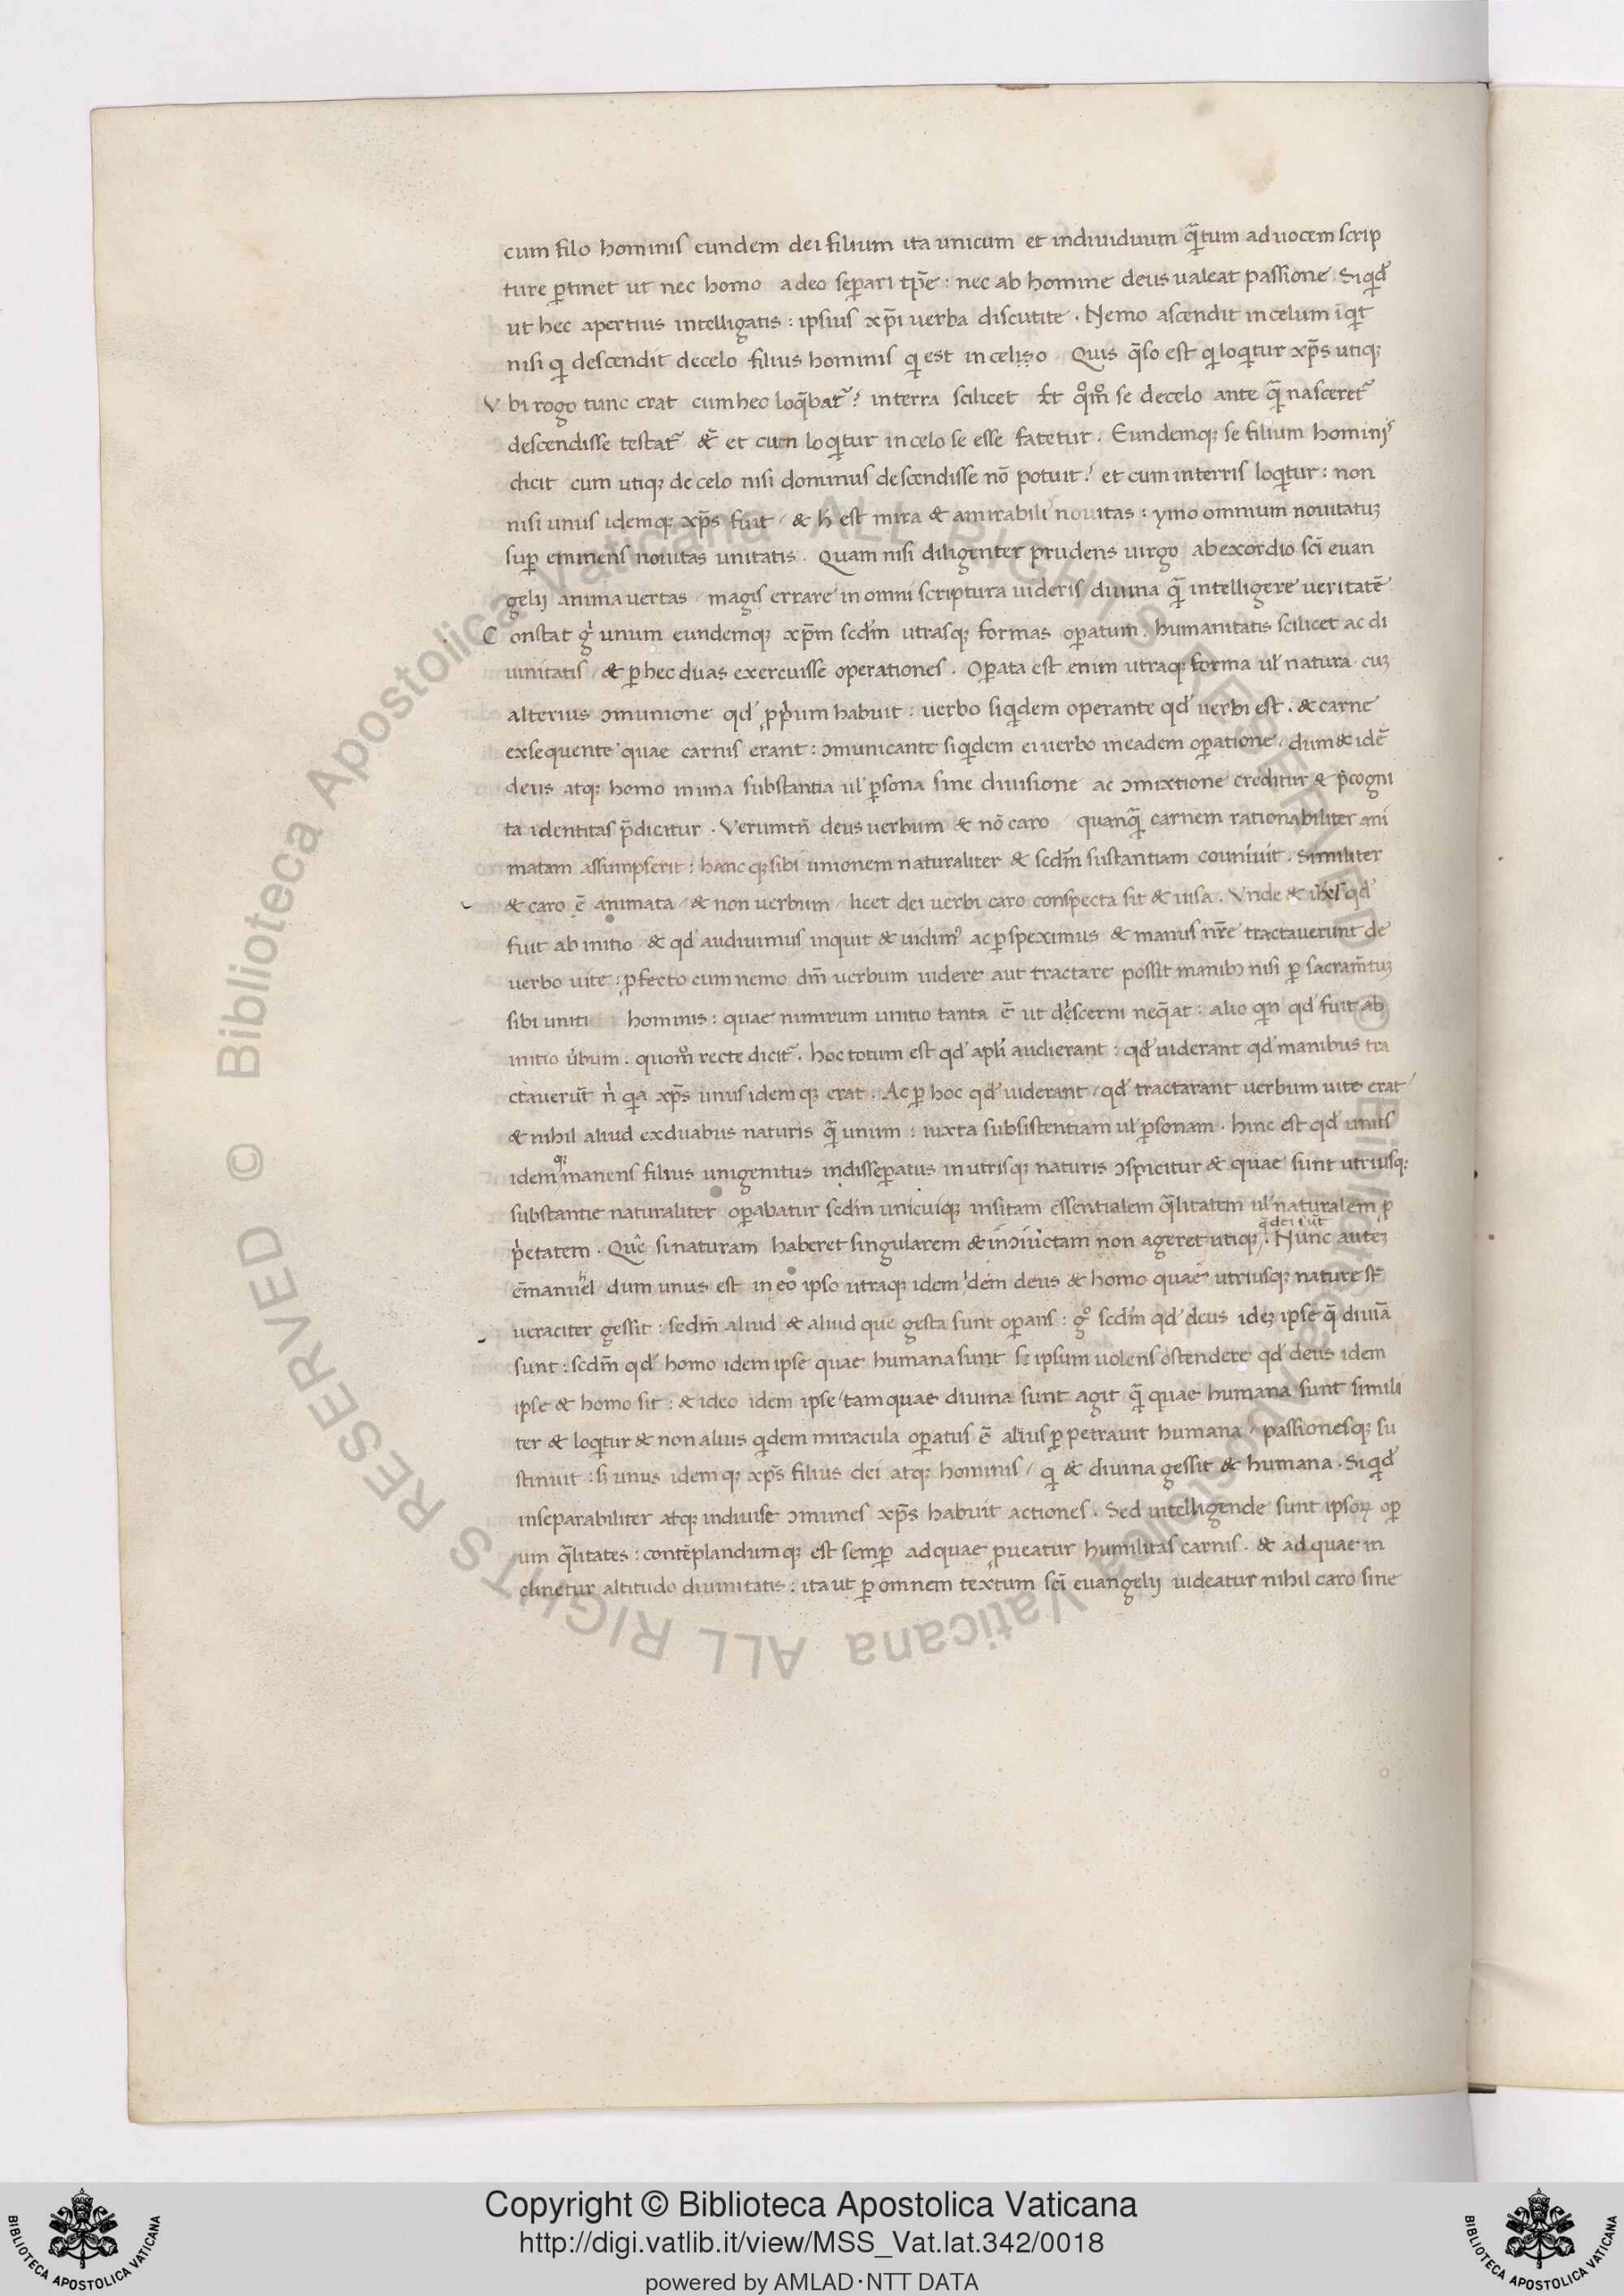 cum filo hominis eundem dei filium ita unicum et indiuiduum q̄tum ad uocem scrip
ture ꝑtinet ut nec homo adeo seꝑari tp̄e : nec ab homine deus ualeat passione . Siqd̄
ut hec apertius intelligatis : ipsius xp̄i uerba discutite . Nemo ascendit in celum iqt
nisi qi descendit de celo filius hominis qi est in celo . Quis q̄so est qi loqitur xp̄s utiqꝫ
V bi rogo tunc erat cum hec loq̄bat᷑ ? in terra scilicet Et qōm se de celo ante q̄ nasceret᷑
descendisse testat᷑ & et cum loqitur in celo se esse fatetur . Eundemqꝫ se filium hominis
dicit cum utiqꝫ de celo nisi dominus descendisse nō potuit ? et cum in terris loqitur : non
nisi unus idemqꝫ xp̄s fuit / & h est mira & amirabili nouitas : ymo omnium nouitatuꝫ
suꝑ eminens nouitas unitatis . Quam nisi diligenter prudens uirgo ab exordio sc̄i euan
gelij anima uertas / magis errare in omni scriptura uideris diuina q̄ intelligere ueritatē
C onstat g̊ unum eundemqꝫ xp̄m scd̄m utrasqꝫ formas oꝑatum . humanitatis scilicet ac di
uinitatis / & ꝑ hec duas exercuisse operationes . Oꝑata est enim utraqꝫ forma ul̄ natura cuꝫ
alterius ɔmunione qd̄ ꝓprium habuit : uerbo siqidem operante qd̄ uerbi est . & carne
exsequente quae carnis erant : ɔmunicante siqidem ei uerbo in eadem oꝑatione / dum & idē
deus atqꝫ homo in una substantia ul̄ ꝑsona sine diuisione ac ɔmixtione creditur & p̄cogni
ta identitas p̄dicitur . Verumtn̄ deus uerbum & nō caro / quanq̄ carnem rationabiliter ani
matam assumpserit : hancqꝫ sibi unionem naturaliter & scd̄m sustantiam couniuit . Similiter
& caro ē animata / & non uerbum / licet dei uerbi caro conspecta sit & uisa . Vnde & qd̄
fuit ab initio & qd̄ audiuimus inquit & uidim⁹ ac ꝑspeximus & manus nr̄e tractauerunt de
uerbo uite : ꝓfecto cum nemo dm̄ uerbum uidere aut tractare possit manibꝫ nisi ꝑ sacram̄tuꝫ
sibi uniti hominis : quae nimirum unitio tanta ē ut discerni neq̄at : alioqin qd̄ fuit ab
initio u̇bum . quom̊ recte dicit᷑ . hoc totum est qd̄ apl̄i audierant : qd̄ uiderant qd̄ manibus tra
ctauerūt n̊ qia xp̄s unus idemqꝫ erat . Ac ꝑ hoc qd̄ uiderant / qd̄ tractarant uerbum uite erat /
& nihil aliud ex duabus naturis q̄ unum : iuxta subsistentiam ul̄ ꝑsonam . hinc est qd̄ unus
idemqꝫ manens filius unigenitus indisseꝑatus in utrisqꝫ naturis ɔspicitur & quae sunt utriusqꝫ
substantie naturaliter oꝑabatur scd̄m unicuiqꝫ insitam essentialem q̄litatem ul̄ naturalem ꝓ
p̊etatem . Quē si naturam haberet singularem & inɔiūctam non ageret utiqꝫ q̄ dei sūt . Nunc auteꝫ
ēmanuhel dum unus est in eo ipso utraqꝫ idem dem deus & homo quae utriusqꝫ nature st̄
ueraciter gessit : scdm̄ aliud & aliud que gesta sunt oꝑans : g̊ scd̄m qd̄ deus ideꝫ ipse q̄ diuīa
sunt : scdm̄ qd̄ homo idem ipse quae humana sunt Se ipsum uolens ostendere qd̄ deus idem
ipse & homo sit : & ideo idem ipse / tam quae diuina sunt agit q̄ quae humana sunt simili
ter & loqitur & non alius qidem miracula oꝑatus ē alius ꝑpetrauit humana / passionesqꝫ su
stinuit : s; unus idemqꝫ xp̄s filius dei atqꝫ hominis / qi & diuina gessit & humana . Siqd̄
inseparabiliter atqꝫ indiuise ɔmunes xp̄s habuit actiones . Sed intelligende sunt ipsoꝝ oꝑ
um q̄litates : contēplandumqꝫ est semꝑ ad quae ꝓueatur humilitas carnis . & ad quae in
clinetur altitudo diuinitatis : ita ut ꝑ omnem textum sc̄i euangelij uideatur nihil caro sine
Copyright © Biblioteca Apostolica Vaticana
http://digi.vatlib.it/view/MSS_Vat.lat.342/0018
powered by AMLAD·NTT DATA